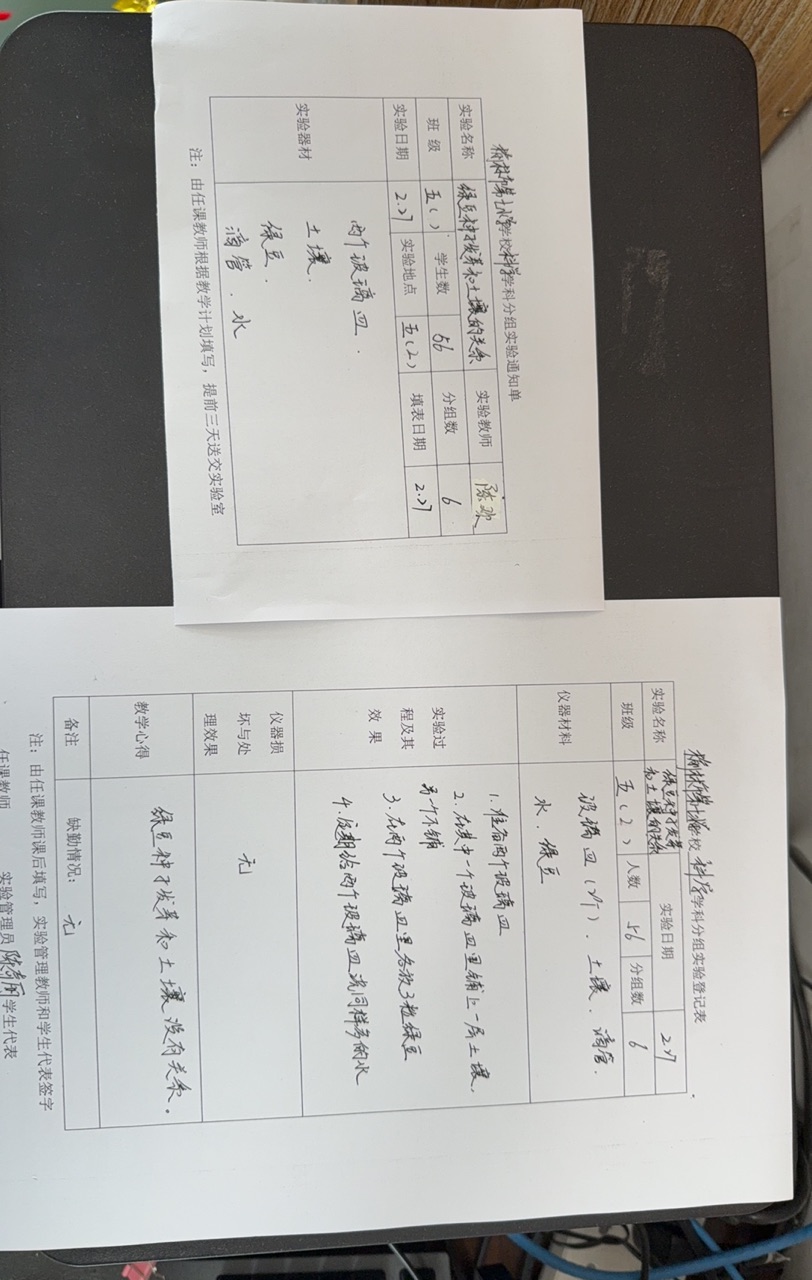 榆林市第十小学学校科学学科分组实验通知单
实验名称 绿豆种子发芽和土壤的关系 实验教师 陈欢
班 级 五( ) 学生数 56 分组数 6
实验日期 2.27 实验地点 五(2) 填表日期 2.27
实验器材
两个玻璃皿.
土壤.
绿豆.
滴管. 水
注：由任课教师根据教学计划填写，提前三天送交实验室
学校 科学学科分组实验登记表
实验名称 绿豆种子发芽
和土壤的关系 实验日期 2.27
班级 五(2) 人数 56 分组数 6
仪器材料 玻璃皿(2个). 土壤. 滴管.
水. 绿豆
实验过
程及其
效 果
1. 准备两个玻璃皿
2. 在其中一个玻璃皿里铺上一层土壤,
另一个不铺
3. 在两个玻璃皿里各放3粒绿豆
4. 定期给两个玻璃皿浇同样多的水
仪器损
坏与处
理效果 无
教学心得 绿豆种子发芽和土壤没有关系。
备注 缺勤情况： 无
注：由任课教师课后填写，实验管理教师和学生代表签字
任课教师 实验管理员 学生代表